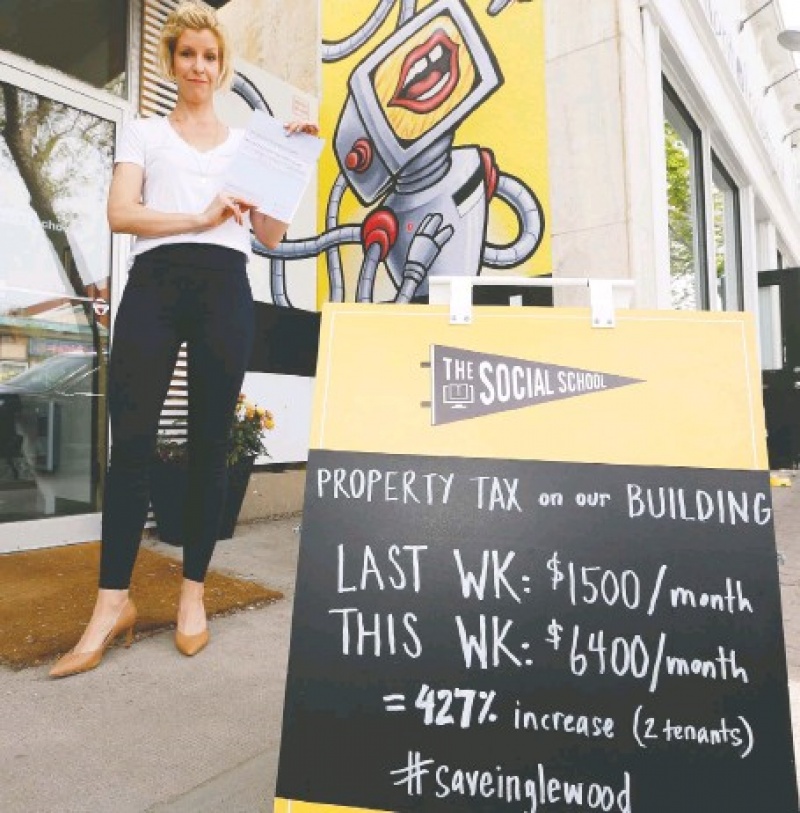 THE
SOCIAL SCHOOL
PROPERTY TAX on our BUILDING
LAST WK: $1500/month
THIS WK: $6400/month
= 427% increase (2 tenants)
#saveinglewood